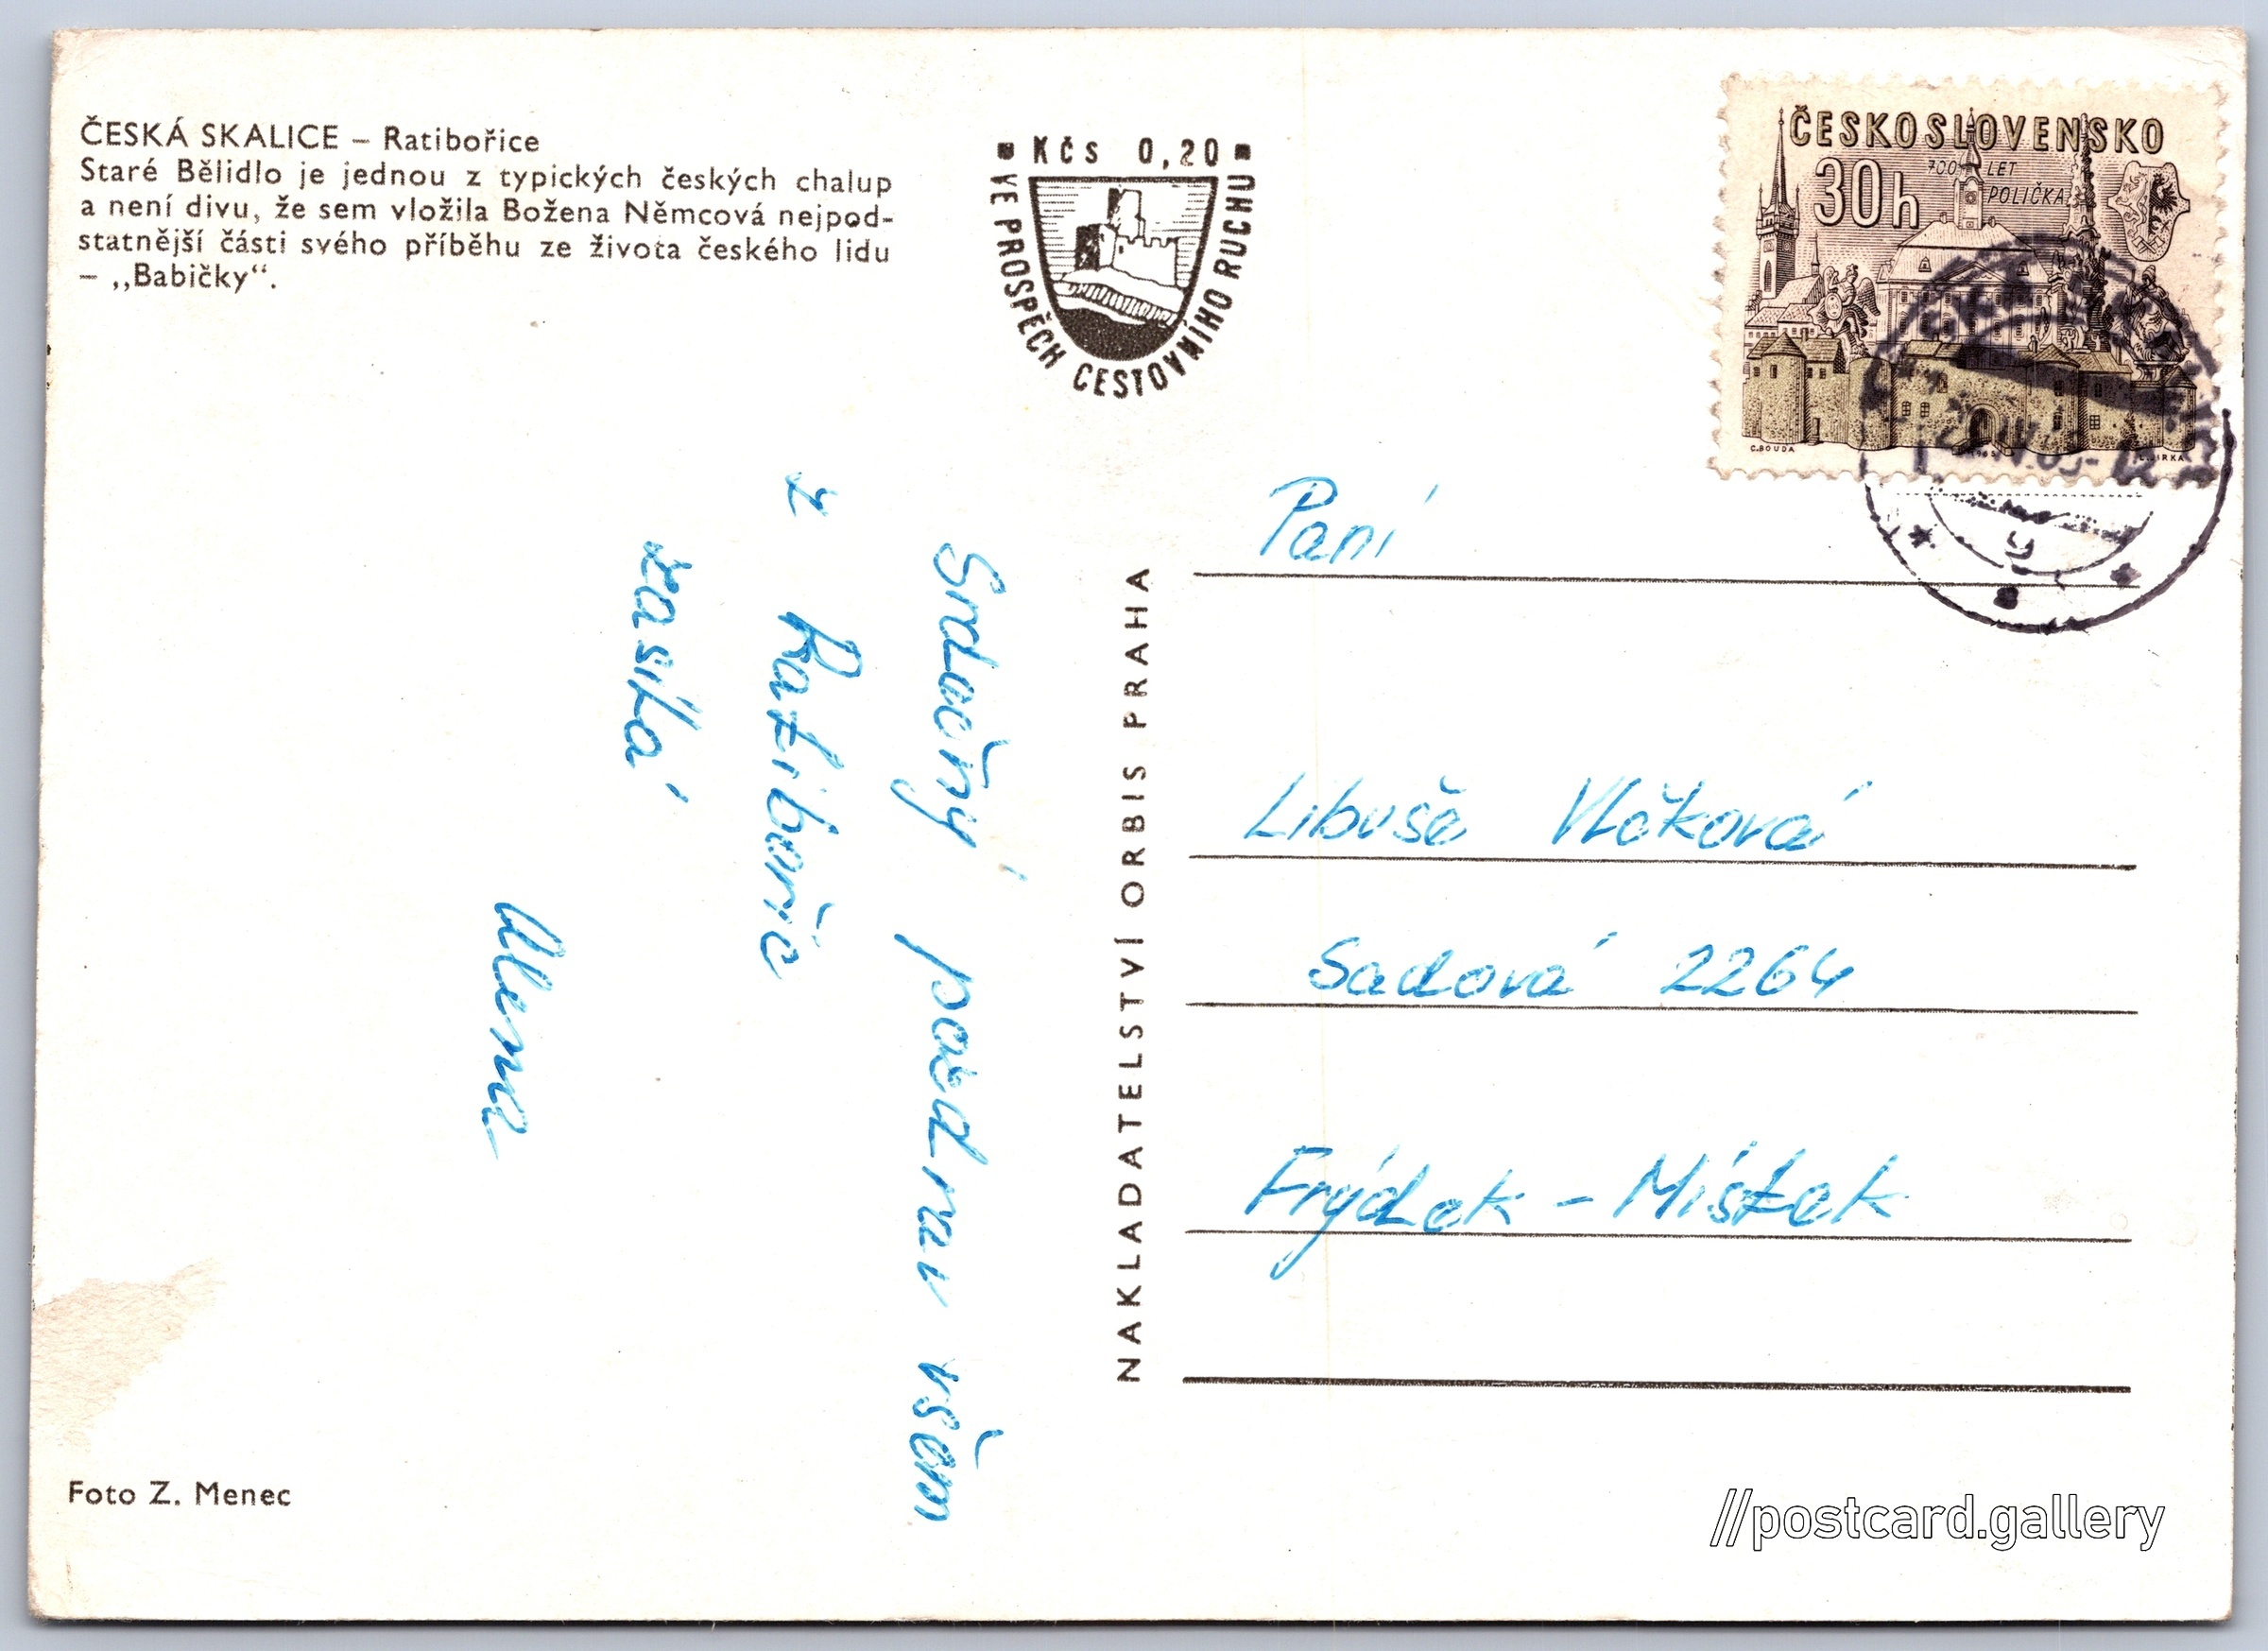 ČESKÁ SKALICE – Ratibořice
Staré Bělidlo je jednou z typických českých chalup
a není divu, že sem vložila Božena Němcová nejpod-
statnější části svého příběhu ze života českého lidu
– ,,Babičky“.
Kčs 0,20
VE PROSPĚCH CESTOVNÍHO RUCHU
ČESKOSLOVENSKO
700 LET
30h POLIČKA
C. BOUDA 1965 J. JIRKA
Srdečný pozdrav všem
z Ratibořic
zasílá
Alena
NAKLADATELSTVÍ ORBIS PRAHA
Paní
Libuše Vlčková
Sadová 2264
Frýdek - Místek
Foto Z. Menec
//postcard.gallery